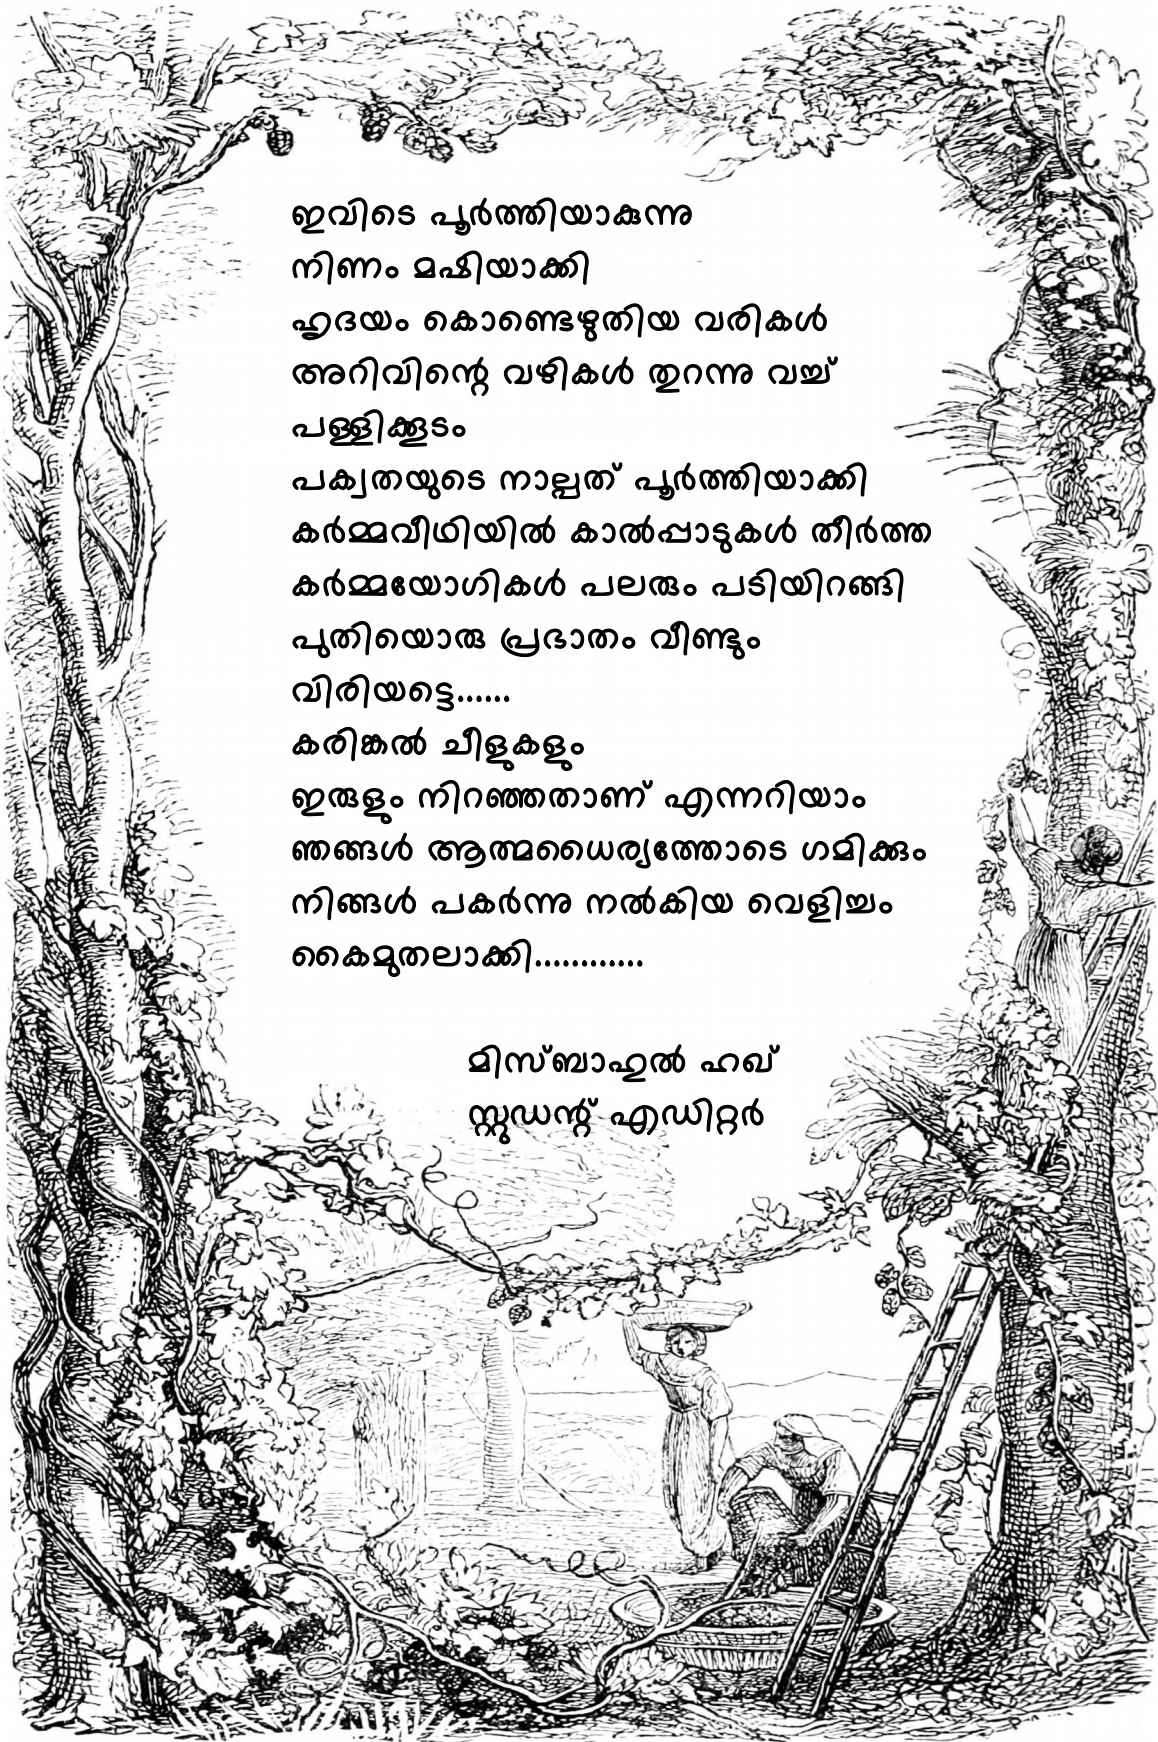 ഇവിടെ പൂർത്തിയാകുന്നു
നിണം മഷിയാക്കി
ഹൃദയം കൊണ്ടെഴുതിയ വരികൾ
അറിവിന്റെ വഴികൾ തുറന്നു വച്ച്
പള്ളിക്കൂടം
പക്വതയുടെ നാല്പത് പൂർത്തിയാക്കി
കർമ്മവീഥിയിൽ കാൽപ്പാടുകൾ തീർത്ത
കർമ്മയോഗികൾ പലരും പടിയിറങ്ങി
പുതിയൊരു പ്രഭാതം വീണ്ടും
വിരിയട്ടെ......
കരിങ്കൽ ചീളുകളും
ഇരുളും നിറഞ്ഞതാണ് എന്നറിയാം
ഞങ്ങൾ ആത്മധൈര്യത്തോടെ ഗമിക്കും
നിങ്ങൾ പകർന്നു നൽകിയ വെളിച്ചം
കൈമുതലാക്കി............
മിസ്ബാഹുൽ ഹഖ്
സ്റ്റുഡന്റ് എഡിറ്റർ